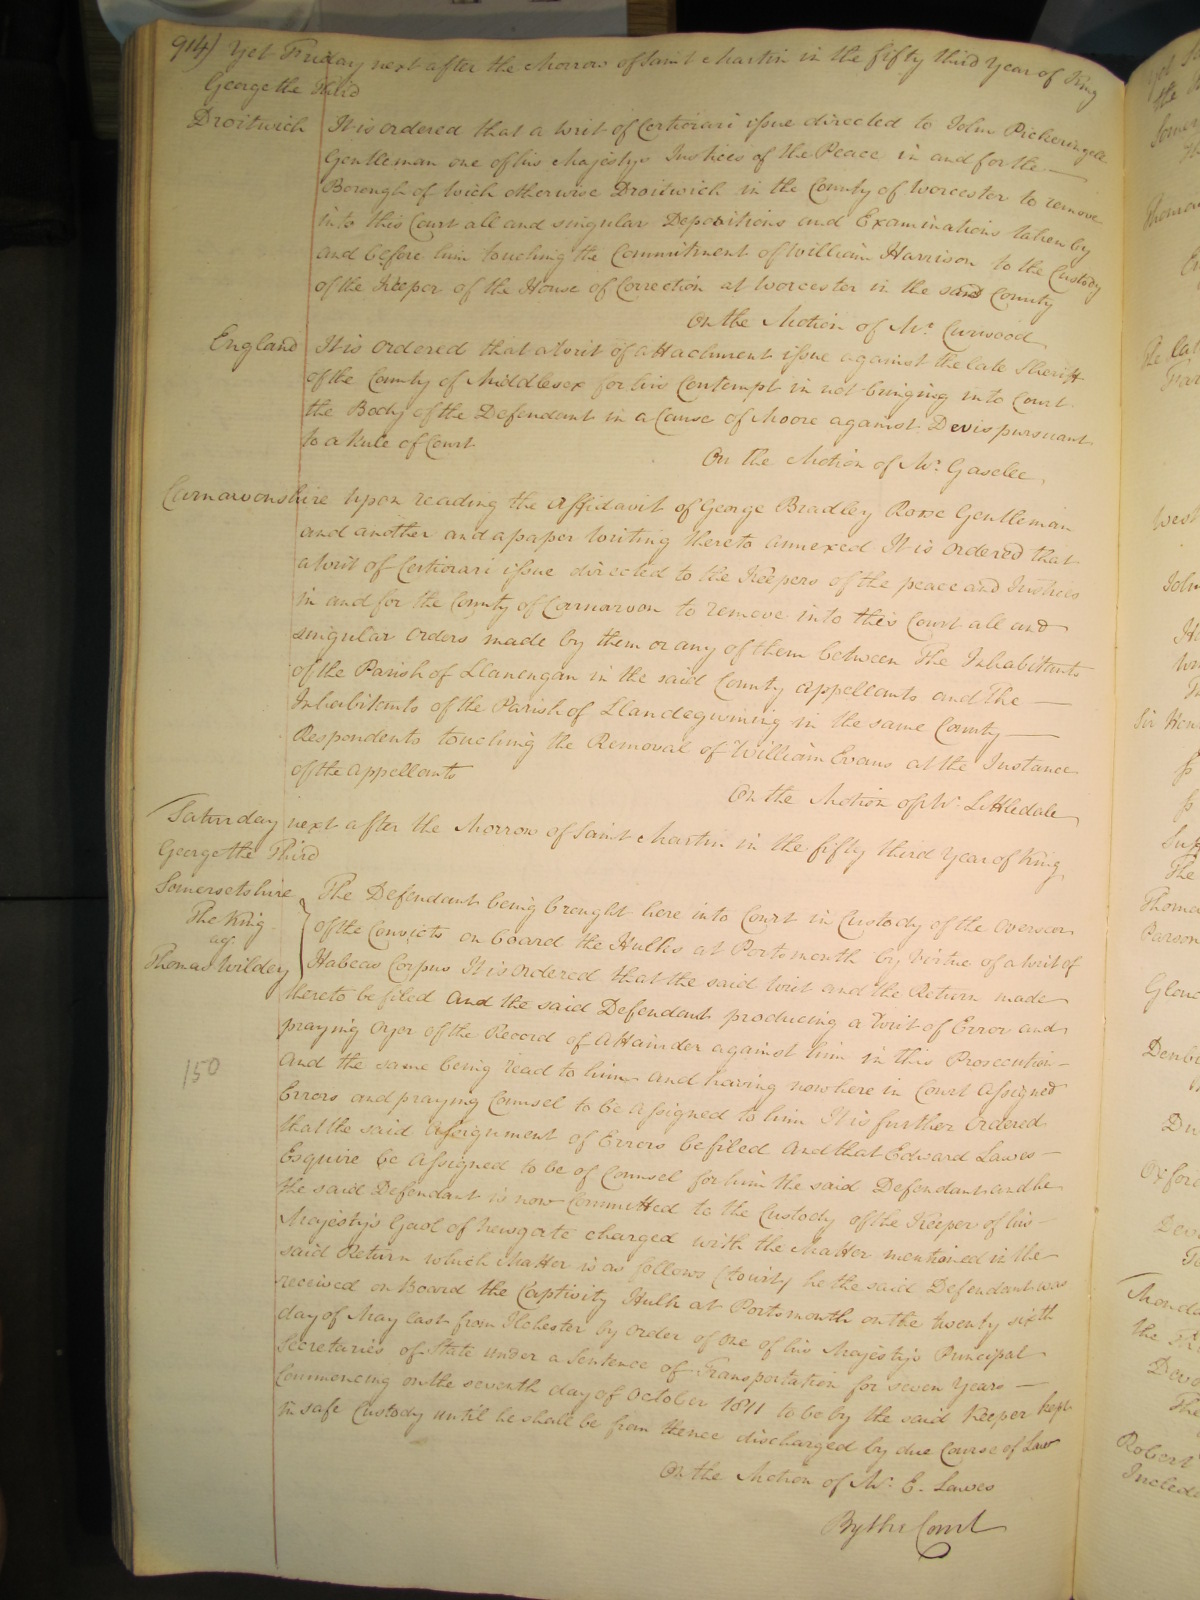 914) Yet Friday next after the Morrow of Saint Martin in the fifty third Year of King
George the Third
Droitwich It is ordered that a Writ of Certiorari issue directed to John Pickeringale
Gentleman one of his Majestys Justices of the Peace in and for the
Borough of Wich otherwise Droitwich in the County of Worcester to remove
into this Court all and singular Depositions and Examinations taken by
and before him touching the Commitment of William Harrison to the Custody
of the Keeper of the House of Correction at Worcester in the said County
On the Motion of Mr. Curwood
England It is ordered that a Writ of attachment issue against the late Sheriff
of the County of Middlesex for his Contempt in not bringing into Court
the Body of the Defendant in a Cause of Moore against Devis pursuant
to a Rule of Court
On the Motion of Mr. Gaselee
Carnarvonshire Upon reading the affidavit of George Bradley Roose Gentleman
and another and a paper Writing thereto annexed It is ordered that
a Writ of Certiorari issue directed to the Keepers of the peace and Justices
in and for the County of Carnarvon to remove into this Court all and
singular Orders made by them or any of them between The Inhabitants
of the Parish of Llanengan in the said County appellants and The
Inhabitants of the Parish of Llandegwining in the same County
Respondents touching the Removal of William Evans at the Instance
of the appellants
On the Motion of Mr. Littledale
Saturday next after the Morrow of Saint Martin in the fifty third Year of King
George the Third
Somersetshire The Defendant being brought here into Court in Custody of the Overseer
The King of the Convicts on board the Hulks at Portsmouth by Virtue of a Writ of
agt.
Thomas Wildey Habeas Corpus It is ordered that the said Writ and the Return made
thereto be filed And the said Defendant producing a Writ of Error and
praying Oyer of the Record of Attainder against him in this Prosecution
and the same being read to him and having now here in Court assigned
Errors and praying Counsel to be assigned to him It is further Ordered
that the said assignment of Errors be filed And that Edward Lawes
Esquire be assigned to be of Counsel for him the said Defendant and he
150
the said Defendant is now Committed to the Custody of the Keeper of his
Majesty's Gaol of Newgate charged with the Matter mentioned in the
said Return which Matter is as follows (to wit) he the said Defendant was
received on Board the Captivity Hulk at Portsmouth on the twenty sixth
day of May last from Ilchester by order of one of his Majesty's Principal
Secretaries of State under a Sentence of Transportation for seven Years
Commencing on the seventh day of October 1811 to be by the said Keeper kept
in safe Custody until he shall be from thence discharged by due Course of Law
On the Motion of Mr. E. Lawes
By the Court